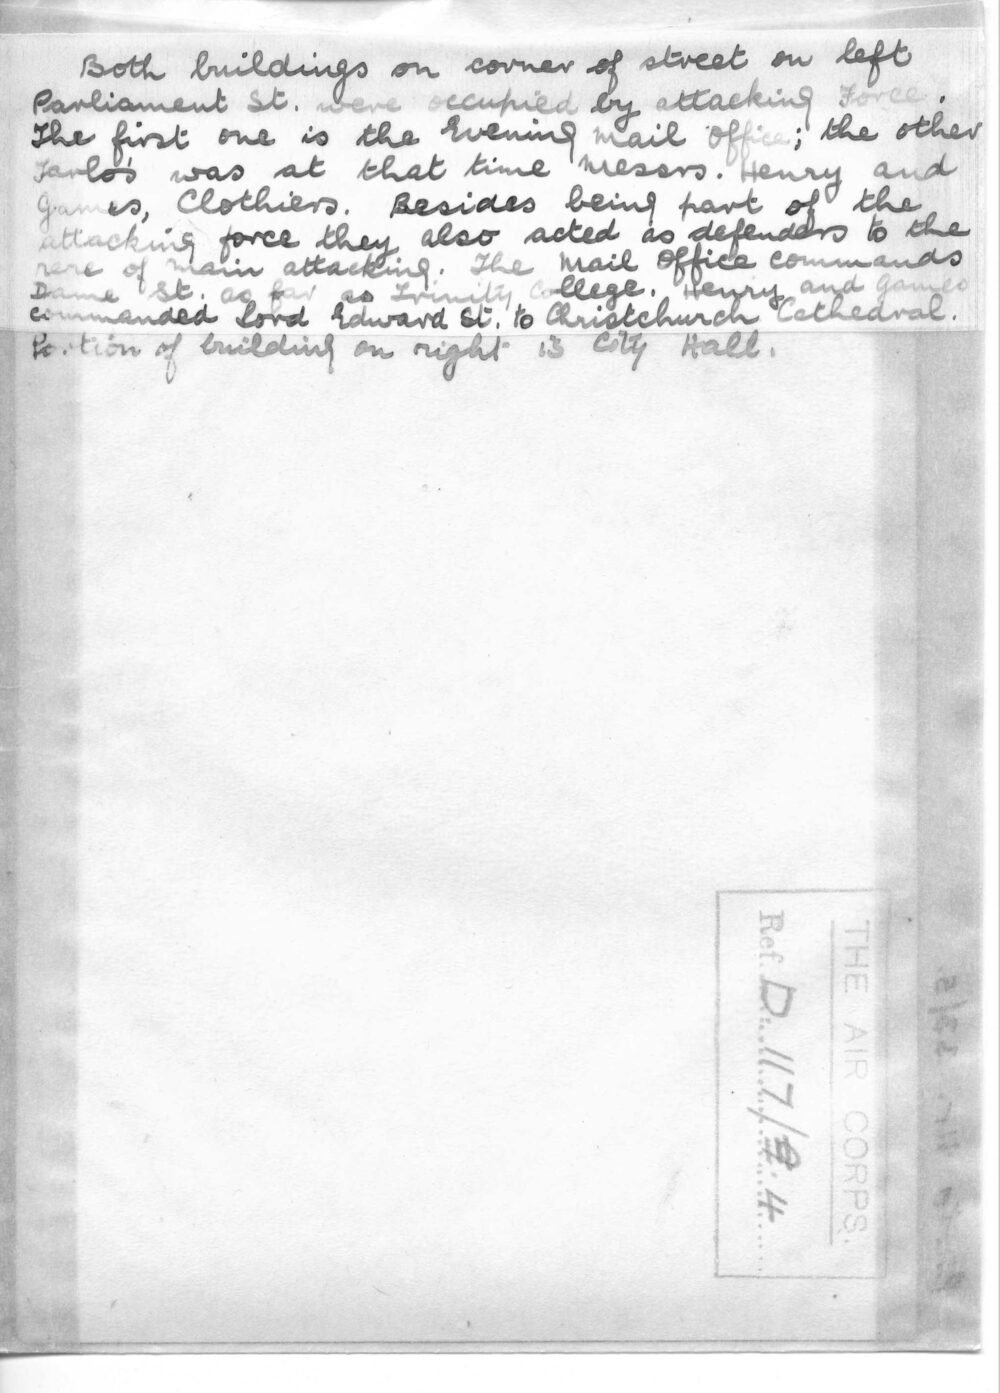 Both buildings on corner of street on left
Parliament St. were occupied by attacking Force.
The first one is the Evening Mail Office; the other
was at that time Messrs. Henry and
Games, Clothiers. Besides being part of the
attacking force they also acted as defenders to the
rere of main attacking. The Mail Office commands
Dame St. as far as Trinity College. Henry and Games
commanded Lord Edward St. to Christchurch Cathedral.
Portion of building on right is City Hall.
THE AIR CORPS.
Ref. D. 117/